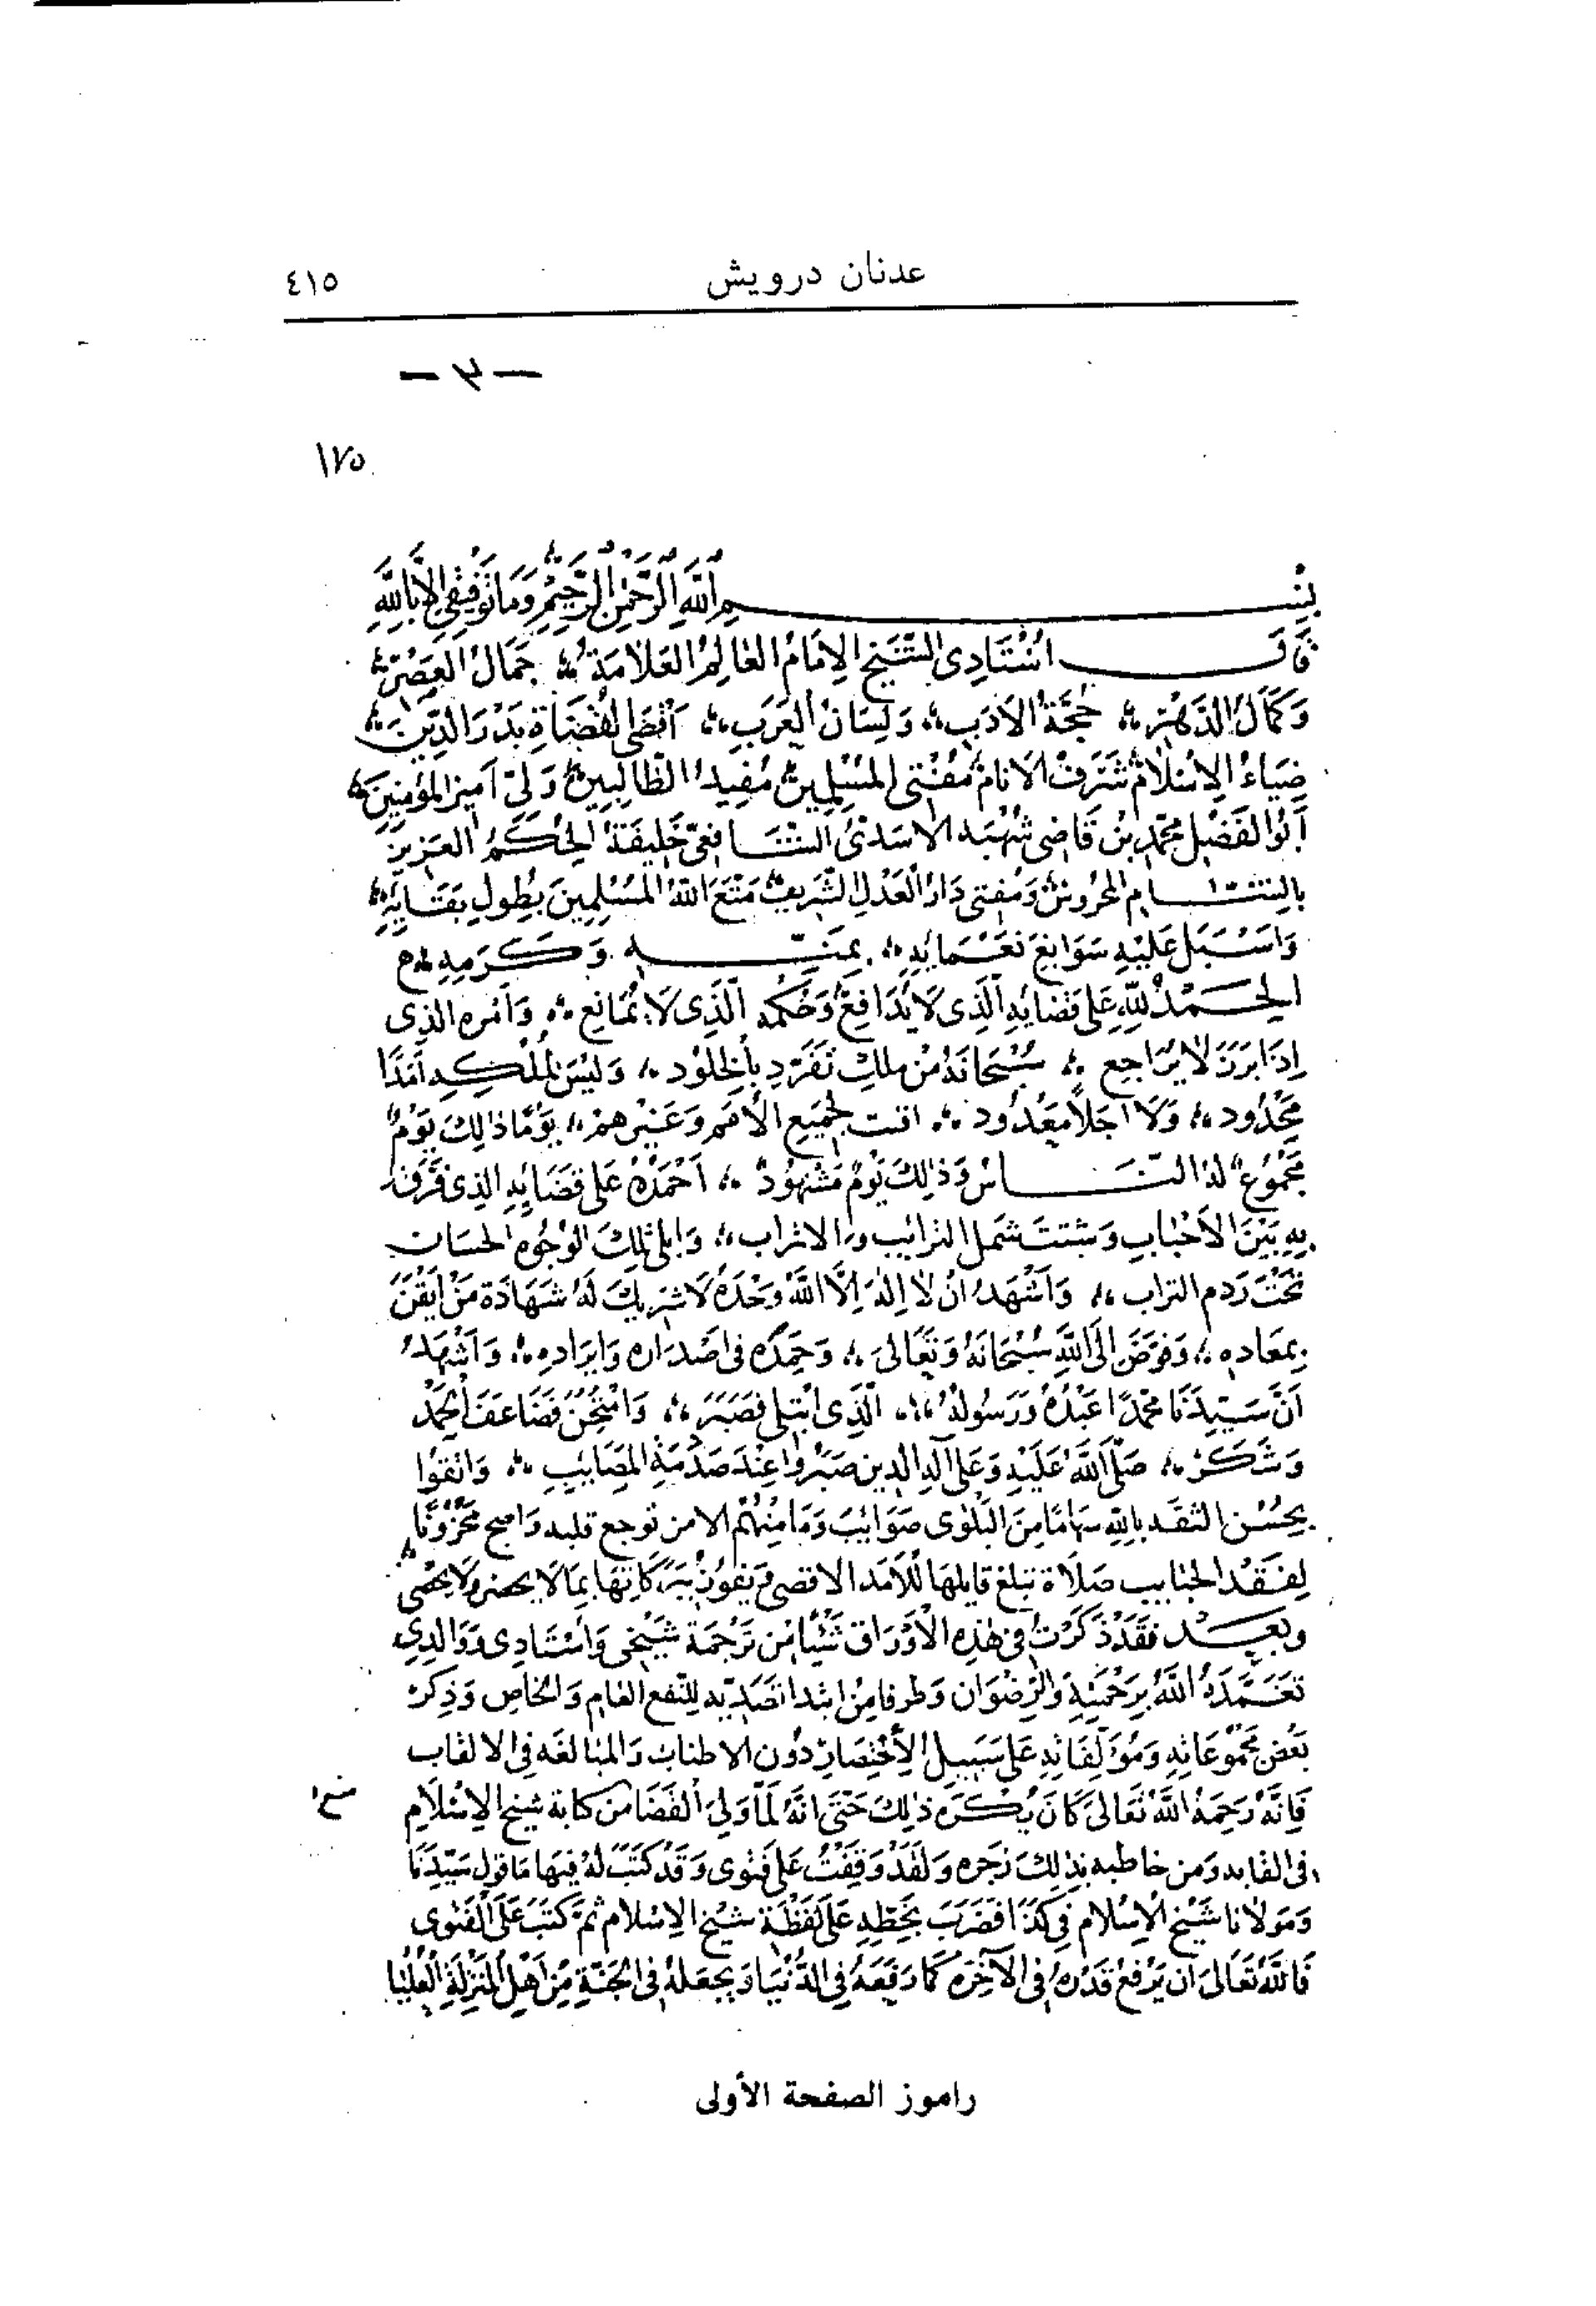 عدنان درويش
٤١٥
— ٣ —
١٧٥
بسم الله الرَّحمن الرَّحيم وَمَا تَوفيقي إلاَّ بالله
قَال اُسْتَادِى الشَّيخ الاِمَامُ العَالِمُ العَلاَمَة جَمَالُ العَصْرِ
وَكَمَالُ الدَّهْرِ حُجَّةُ الأدَبِ وَلِسَانُ العَرَبِ أقضَى القُضَاةِ بَدْرُ الدِّين
ضِيَاءُ الاِسْلامِ شَرَفُ الانامِ مُفْتى المُسْلِمِينَ مُفِيدُ الطَّالِبِينَ وَلِىّ اَمير المؤمِنِينَ
اَبُو الفَضْل محمّد بنُ قَاضِى شُهْبَه الاسَدىّ الشَّافِعىّ خَلِيفَةُ الحُكْمِ العَزِيزِ
بالشَّام المحرُوسِ وَمُفتى دَار العَدْلِ الشّرِيفِ مَتَّعَ اللهُ المُسْلِمِينَ بطُولِ بَقَايِهِ
وَاَسْبَلَ عَلَيْهِ سَوَابغَ نَعْمَايِهِ بمَنِّهِ وَكَرَمِهِ
الحَمْدُ للهِ عَلى قضَايِهِ الَّذِى لاَ يُدَافَعُ وَحُكْمِه الَّذِى لاَ يُمَانَع وَاَمْرِهِ الذِى
اِذَا بَرَزَ لاَ يُرَاجَع سُبْحَانَهُ مِنْ مَلِكٍ تَفَرَّدَ بالخُلُود وَلَيْسَ لمُلْكِهِ اَمَدًا
مَحْدُود وَلاَ اَجَلاً مَعْدُود لجَميعِ الأُمَم وَغَيْرِهمْ يَوْمًا ذلِكَ يَوْمٌ
مَجْمُوعٌ لهُ النَّاسُ وَذلِكَ يَوْمٌ مَشْهُودٌ اَحْمَدُهُ عَلى قَضَايِهِ الذِى فَرَّقَ
بِهِ بَيْنَ الأحْبَابِ وَشَتَّتَ شَمْلَ الترايب والاتراب وَابلى تِلكَ الوُجُوهِ الحسَان
تَحْتَ رَدم التراب وَاَشْهَدُ اَنْ لاَ اِلهَ اِلاَّ اللهُ وَحْدَهُ لاَ شَرِيكَ لَهُ شَهَادَةَ مَنْ اَيْقَنَ
بمَعَادِهِ وَفَوَّضَ اِلَى اللهِ سُبْحَانَهُ وَتَعَالىَ وَحَمِدَهُ فى اصْدَارِه وَاِيرَادِه وَاَشْهَدُ
اَنَّ سَيِّدَنَا محمّدًا عَبْدُهُ وَرَسُولهُ الَّذِى ابْتُلِى فَصَبَرَ وَامْتُحِنَ فَضَاعَفَ الحَمْدَ
وَشَكَرَ صَلَّى اللهُ عَلَيْهِ وَعَلى آلِهِ الذين صَبَرُوا عِنْدَ صَدْمَةِ المصَايِبِ وَاتقوا
بِحُسْنِ الثقَة بِاللهِ سِهَامًا مِنَ البَلْوَى صَوَايِبَ وَمَا مِنْهُمْ الا من توجع قلبه وَاصبح مَحْزُونًا
لِفَقْدِ الحبَايب صَلاَة تبلغ قايلهَا الاَمَد الاقصى وَيَفُوزُ بِبَرَكَاتِهَا بِمَا لاَ يحصر وَلا يُحْصَى
وبَعْد فقَدْ ذَكَرْتُ فى هٰذِهِ الاَوْرَاقِ شَيْئًا مِنْ تَرْجَمَة شَيْخى وَاُسْتَادِى وَوَالِدِى
تَغَمَّدَهُ اللهُ بِرَحْمَتِهِ وَالرِّضْوَان وَطرفا مِنْ ابتدا تَصَدِّيه للنَّفع العَام وَالخاصِ وَذِكر
بَعْض مَجْمُوعَاتِهِ وَمُؤَلَّفَاتِهِ عَلى سَبيلِ الاِخْتِصَارِ دُون الاطنابِ وَالمبَالغَه فى الالقاب
فَاِنَّهُ رَحِمَهُ اللهُ تَعَالىَ كَانَ يَكْرَهُ ذلِكَ حَتّى اَنَّهُ لَمَّا وَلىَ القَضَا مَنَعَ مِن كتابة شيخ الاِسْلاَمِ
فى القابه وَمن خاطبه بذلِكَ زَجَره وَلَقَدْ وَقفتُ عَلى فَتوى وَقَدْ كَتَبَ لَهُ فِيهَا مَا قول سَيِّدنَا
وَمَولانا شَيْخ الاِسْلام فى كَذَا فَضَرَبَ بخَطِّهِ عَلى لَفْظَةِ شيْخ الاِسْلام ثمّ كَتَبَ عَلَى الفَتْوى
فَاللهُ تَعَالىَ ان يَرْفعَ قَدْرهُ فى الآخِرَه كمَا رَفَعَهُ فى الدُّنْيَا وَيجعَلهُ فى الجَنَّةِ مِنْ اَهْلِ المَنْزِلَةِ العُلْيَا
راموز الصفحة الأولى